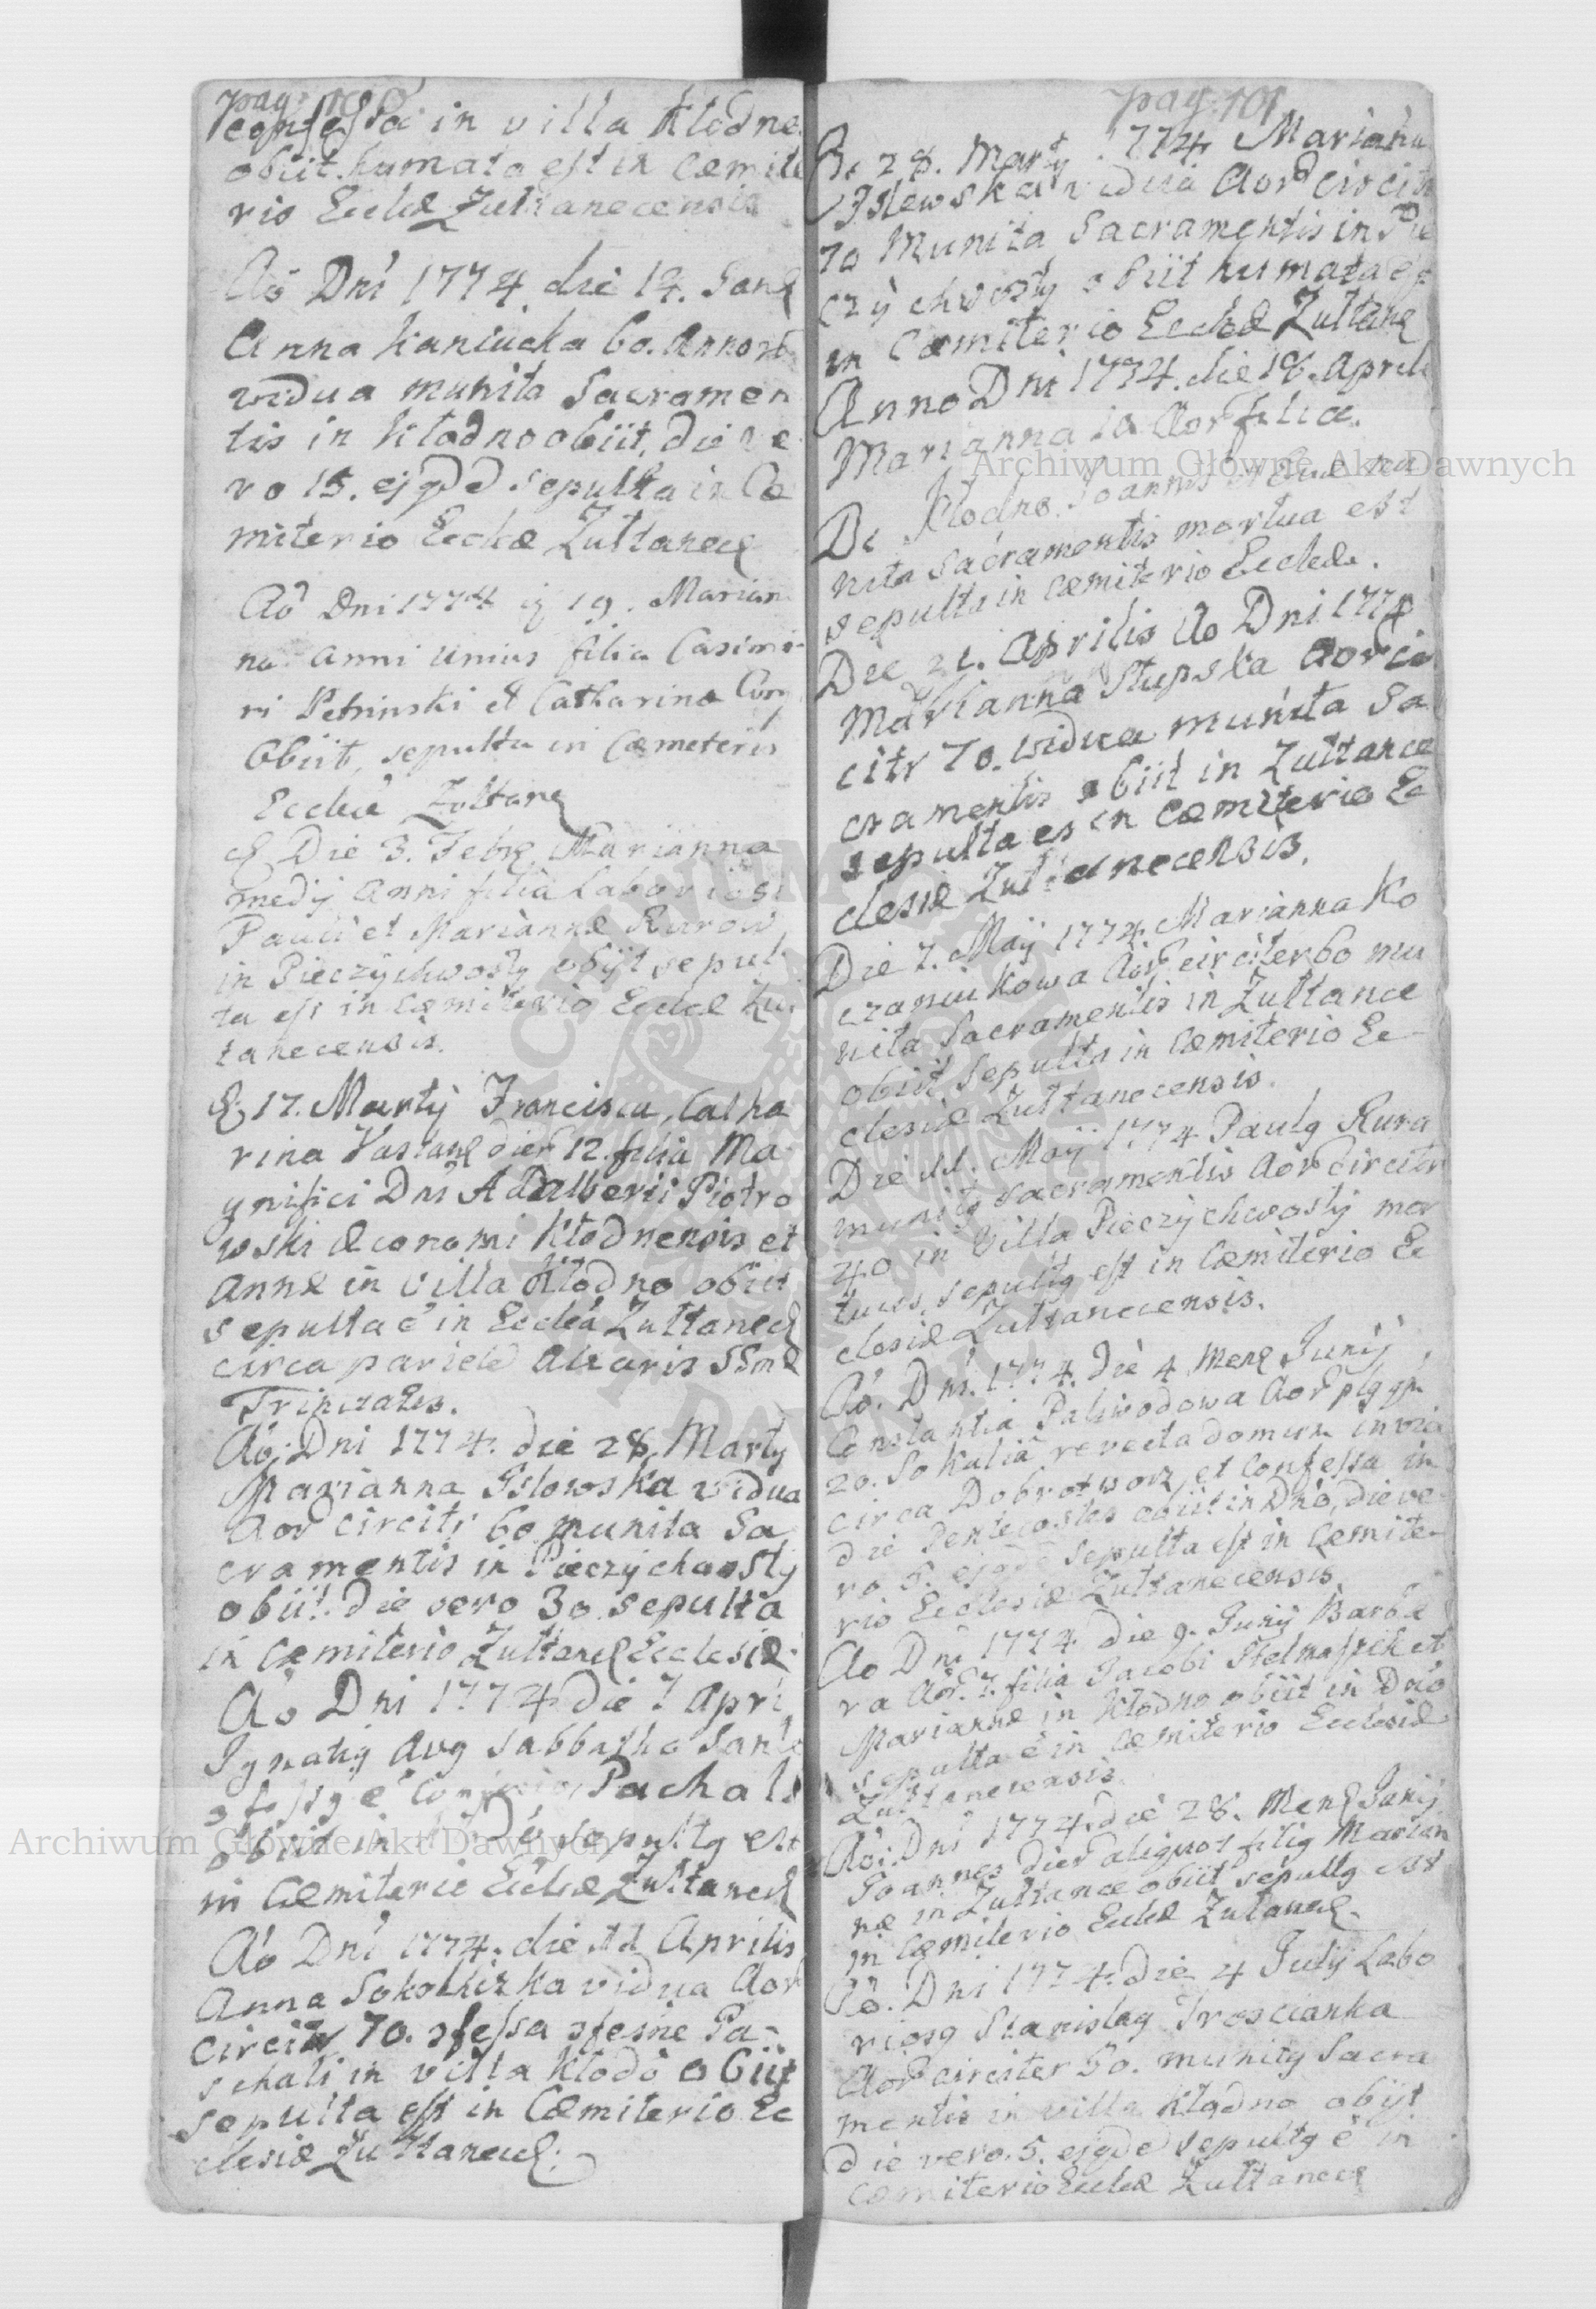 pag. 100
confessa in villa Kłodne
obiit humata est in Cæmite
rio Eccłæ Zułtanecensis
Ao Dni 1774 die 14. Janʒ
Anna Kaniucka 60. Annor
vidua munita Sacramen
tis in Kłodno obiit, die ve
ro 15. ejqde sepulta in Cæ
miterio Eccłæ Zułtanecʒ
Ao Dni 1774 19. Marian
na anni unius filia Casimi
ri Petrinski et Catharinæ Con
Obiit, sepulta in Cæmeterio
Eccłiæ Zołtanʒ
Die 3. Febrʒ Marianna
medij anni filia Laboriosi
Pauli et Mariannæ Kurow
in Pieczychwosty obijt sepul
ta est in Cæmiterio Eccłæ Zuł
tanecensis.
17. Martij Francisca, Catha
rina dier 12. filia Ma
gnifici Dni Adalberti Piotro
wski Œconomi Kłodnensis et
Annæ in villa Kłodno obiit
sepulta ē in Eccłia Zułtanecʒ
circa parietē Altaris SSmæ
Trinitatis.
Ao. Dni 1774. die 28. Marty
Marianna Isłowska vidua
Aor circitr 60 munita Sa
cramentis in Pieczychwosty
obiit. die vero 30 sepulta
in Cæmiterio Zułtanecʒ Ecclesiæ
Ao Dni 1774 die 7 Apri
Ignatiꝯ Avg Sabbatho Sancto
Pachal
obiit in sepultꝯ est
in Cæmiterio Eccłæ Zułtanecʒ
Ao Dni 1774. die 11 Aprilis
Anna Sokolliszka vidua Aor
circitr 70. ꝯfessa ꝯfesne Pa-
schali in villa Kłodo obiit
sepulta est in Cæmiterio Ec
clesiæ Zułtanecʒ.
pag. 101
De 28. Marty 1774 Marianna
Isłewska vidua Aor circitr
70 Munita Sacramentis in Pie
czychwosty obiit humata est
in Cæmiterio Eccłæ Zułtanʒ
Anno Dni 1774. die 18. Aprili
Marianna 10 Aor filia.
De Kłodno Joannis mu
nita Sacramentis mortua est
sepulta in Cæmiterio Eccłæ.
Die 21. Aprilis Ao Dni 1774
Marianna Słupska Aor cir
citr 70. vidua munita Sa
cramentis obiit in Zułtance
sepulta es in Cæmiterio Ec
clesiæ Zułtanecensis.
Die 7. Maij 1774 Marianna Ko
czaniukowa Aor circiter 60 mu
nita Sacramentis in Zułtance
obiit sepulta in Cæmiterio Ec
clesiæ Zułtanecensis.
Die 11. Maij 1774 Paulꝯ Kura
munitꝯ Sacramentis Aor circitr
40 in Villa Pieczychwosty mor
tuus, sepultꝯ est in Cæmiterio Ec
clesiæ Zułtanecensis.
Ao. Dni. 1774. die 4 Menʒ Junij
Constantia Paliwodowa Aor
20. Sokalia revecta domum in via
circa Dobrotwor, et Confessa in
die Pentecostes obiit in Dno, die ve
ro 5. ejqde sepulta est in Cæmite
rio Ecclesiæ Zułtanecensis
Ao Dni 1774 die 9. Junij Barba
ra Aor. 7. filia Jacobi Stelmaszek et
Mariannæ in Kłodno obiit in Dno
sepulta ē in Cæmiterio Ecclesiæ
Zułtanecensis.
Ao. Dni 1774. die 28. Menʒ Junij
Joannes dier aliquot filiꝯ Marian
næ in Zułtance obiit sepultꝯ est
in Cæmiterio Eccłæ Zułtanecʒ.
Ao. Dni 1774. die 4 Julij Labo
riosꝯ Stanislaꝯ Troscianka
Aor circiter 60. munitꝯ Sacra
mentis in villa Kłodno obijt
die vero. 5. ejqde sepultꝯ ē in
Cæmiterio Eccłæ Zułtanecʒ
Archiwum Główne Akt Dawnych
Archiwum Główne Akt Dawnych